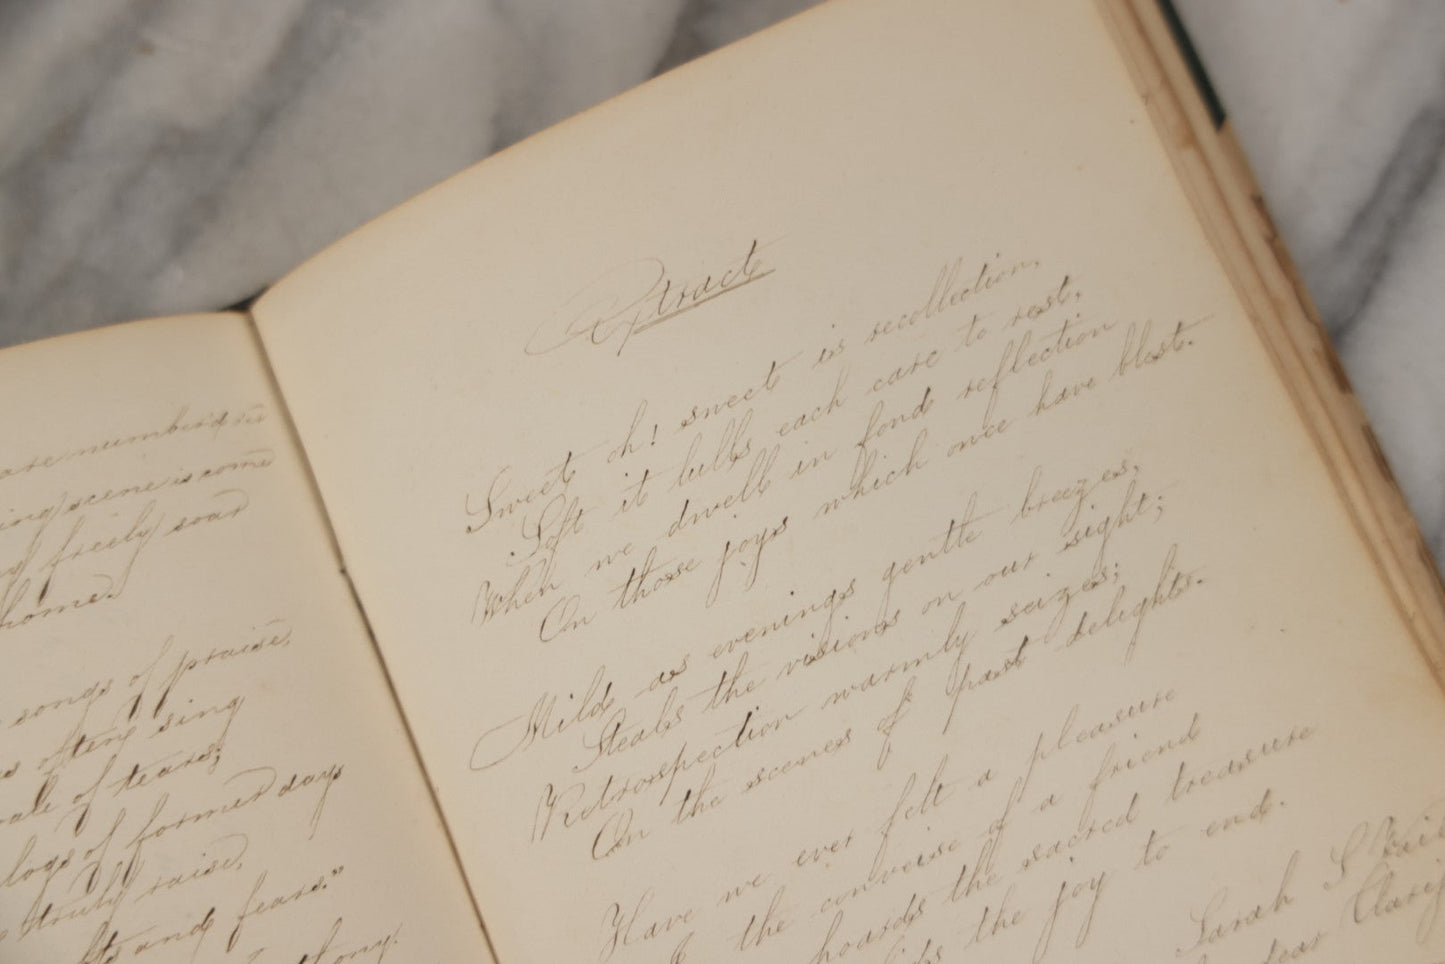 are number'd
scene is come
freely soar
home.
songs of praise,
often sing
vale of tears;
of former days
truly raise,
and fears."
Extract
Sweet oh! sweet is recollection,
Soft it lulls each care to rest,
When we dwell in fond reflection
On those joys which once have blest.
Mild as evenings gentle breezes,
Steals the visions on our sight;
Retrospection warmly seizes;
On the scenes of past delights.
Have we ever felt a pleasure
the converse of a friend
hoards the sacred treasure
the joy to end.
Sarah S
dear